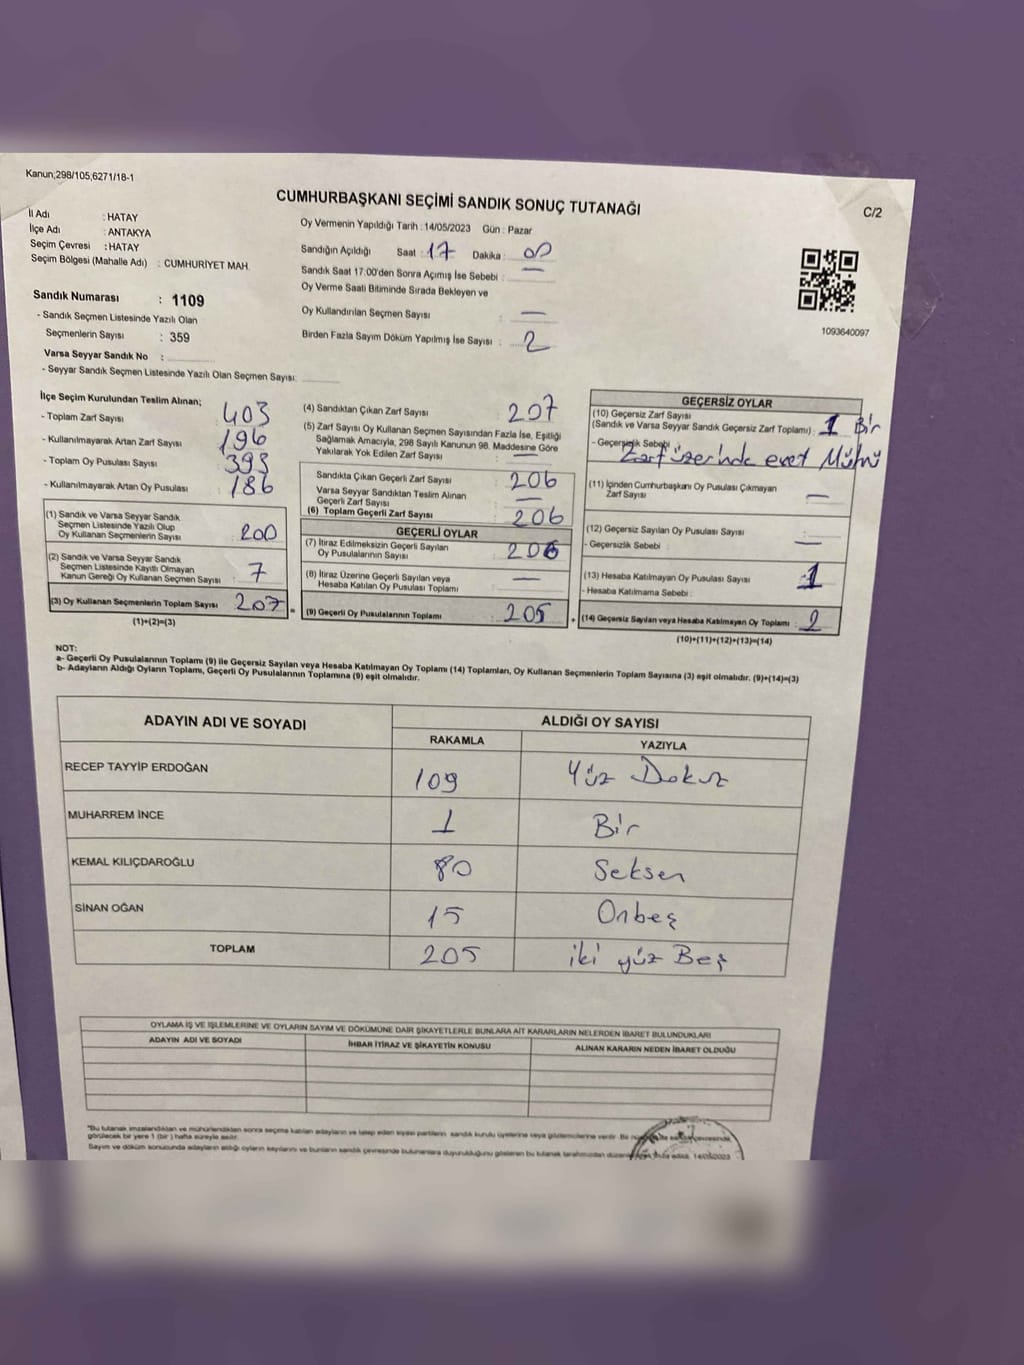 Kanun;298/105,6271/18-1
CUMHURBAŞKANI SEÇİMİ SANDIK SONUÇ TUTANAĞI
C/2
İl Adı : HATAY
İlçe Adı : ANTAKYA
Seçim Çevresi : HATAY
Seçim Bölgesi (Mahalle Adı) : CUMHURİYET MAH.
Sandık Numarası : 1109
- Sandık Seçmen Listesinde Yazılı Olan
Seçmenlerin Sayısı : 359
Varsa Seyyar Sandık No :
- Seyyar Sandık Seçmen Listesinde Yazılı Olan Seçmen Sayısı:
Oy Vermenin Yapıldığı Tarih : 14/05/2023 Gün : Pazar
Sandığın Açıldığı Saat : 17 Dakika :
Sandık Saat 17.00'den Sonra Açımış İse Sebebi : —
Oy Verme Saati Bitiminde Sırada Bekleyen ve
Oy Kullandırılan Seçmen Sayısı : —
Birden Fazla Sayım Döküm Yapılmış İse Sayısı : 2
1093640097
İlçe Seçim Kurulundan Teslim Alınan;
- Toplam Zarf Sayısı : 403
- Kullanılmayarak Artan Zarf Sayısı : 196
- Toplam Oy Pusulası Sayısı : 393
- Kullanılmayarak Artan Oy Pusulası : 186
(1) Sandık ve Varsa Seyyar Sandık
Seçmen Listesinde Yazılı Olup
Oy Kullanan Seçmenlerin Sayısı : 200
(2) Sandık ve Varsa Seyyar Sandık
Seçmen Listesinde Kayıtlı Olmayan
Kanun Gereği Oy Kullanan Seçmen Sayısı : 7
(3) Oy Kullanan Seçmenlerin Toplam Sayısı : 207 =
(1)+(2)=(3)
(4) Sandıktan Çıkan Zarf Sayısı : 207
(5) Zarf Sayısı Oy Kullanan Seçmen Sayısından Fazla İse, Eşitliği
Sağlamak Amacıyla, 298 Sayılı Kanunun 98. Maddesine Göre
Yakılarak Yok Edilen Zarf Sayısı : —
Sandıkta Çıkan Geçerli Zarf Sayısı : 206
Varsa Seyyar Sandıktan Teslim Alınan
Geçerli Zarf Sayısı : —
(6) Toplam Geçerli Zarf Sayısı : 206
GEÇERLİ OYLAR
(7) İtiraz Edilmeksizin Geçerli Sayılan
Oy Pusulalarının Sayısı : 206
(8) İtiraz Üzerine Geçerli Sayılan veya
Hesaba Katılan Oy Pusulası Toplamı : —
(9) Geçerli Oy Pusulalarının Toplamı : 205 +
GEÇERSİZ OYLAR
(10) Geçersiz Zarf Sayısı
(Sandık ve Varsa Seyyar Sandık Geçersiz Zarf Toplamı) : 1 Bir
- Geçersizlik Sebebi : Zarf üzerinde evet Mührü
(11) İçinden Cumhurbaşkanı Oy Pusulası Çıkmayan
Zarf Sayısı : —
(12) Geçersiz Sayılan Oy Pusulası Sayısı
- Geçersizlik Sebebi : —
(13) Hesaba Katılmayan Oy Pusulası Sayısı : 1
- Hesaba Katılmama Sebebi :
(14) Geçersiz Sayılan veya Hesaba Katılmayan Oy Toplamı : 2
(10)+(11)+(12)+(13)=(14)
NOT:
a- Geçerli Oy Pusulalarının Toplamı (9) ile Geçersiz Sayılan veya Hesaba Katılmayan Oy Toplamı (14) Toplamları, Oy Kullanan Seçmenlerin Toplam Sayısına (3) eşit olmalıdır. (9)+(14)=(3)
b- Adayların Aldığı Oyların Toplamı, Geçerli Oy Pusulalarının Toplamına (9) eşit olmalıdır.
ADAYIN ADI VE SOYADI ALDIĞI OY SAYISI
RAKAMLA YAZIYLA
RECEP TAYYİP ERDOĞAN 109 Yüz Dokuz
MUHARREM İNCE 1 Bir
KEMAL KILIÇDAROĞLU 80 Seksen
SİNAN OĞAN 15 Onbeş
TOPLAM 205 iki yüz Beş
OYLAMA İŞ VE İŞLEMLERİNE VE OYLARIN SAYIM VE DÖKÜMÜNE DAİR ŞİKAYETLERLE BUNLARA AİT KARARLARIN NELERDEN İBARET BULUNDUKLARI
ADAYIN ADI VE SOYADI İHBAR İTİRAZ VE ŞİKAYETİN KONUSU ALINAN KARARIN NEDEN İBARET OLDUĞU
"Bu tutanak imzalandıktan ve mühürlendikten sonra seçime katılan adayların ve talep eden siyasi partilerin sandık kurulu üyelerine veya gözlemcilerine verilir. Bir
görülecek bir yere 1 (bir) hafta süreyle asılır.
Sayım ve döküm sonucunda adayların aldığı oyların kayıtlarını ve bunların sandık çevresinde bulunanlara duyurulduğunu gösteren bu tutanak tarafımızdan 14/05/2023